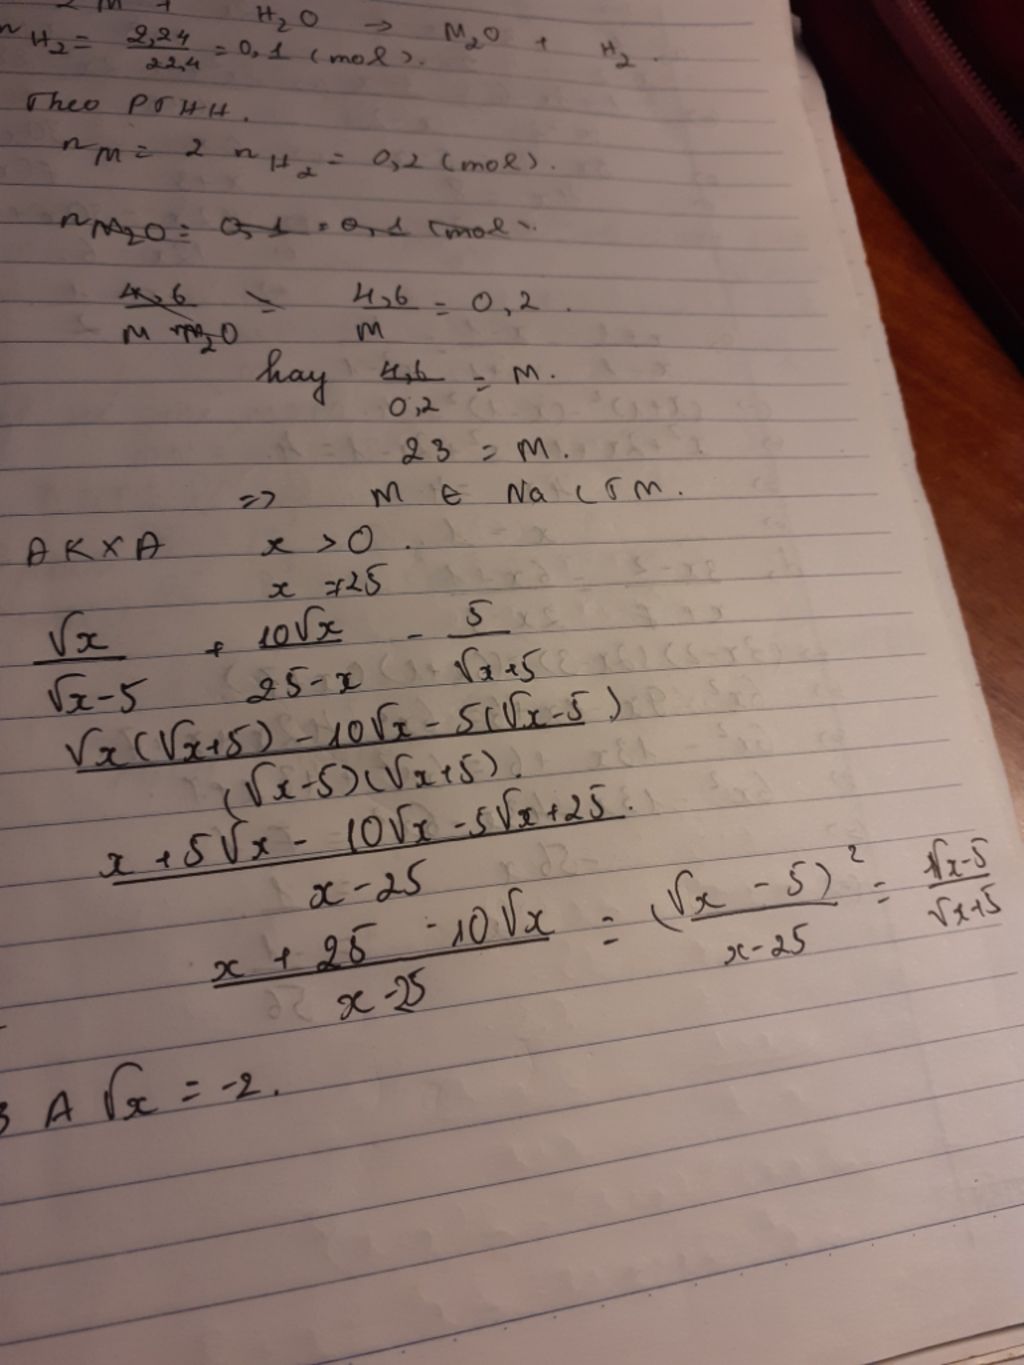 2 M + H₂O → M₂O + H₂.
n H₂ = 2,24/22,4 = 0,1 (mol).
Theo PTHH.
n M = 2 n H₂ = 0,2 (mol).
n M₂O = 0,1 · 0,1 (mol).
4,6/M M₂O = 4,6/M = 0,2.
hay 4,6/0,2 = M.
23 = M.
=> M ∈ Na (TM.
ĐKXĐ x > 0.
x ≠ 25
√x/(√x-5) + 10√x/(25-x) - 5/(√x+5)
(√x(√x+5) - 10√x - 5(√x-5))/((√x-5)(√x+5)).
(x + 5√x - 10√x - 5√x + 25)/(x-25).
(x + 25 - 10√x)/(x-25) = (√x - 5)²/(x-25) = (√x-5)/(√x+5)
A √x = -2.